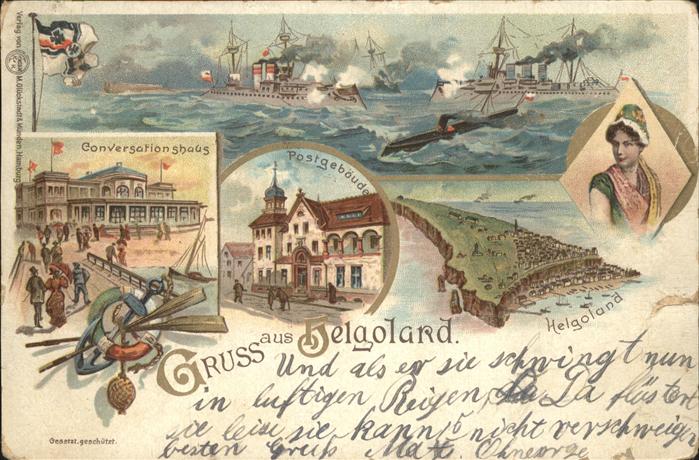 Verlag von M. Glückstadt & Münden, Hamburg
Conversationshaus
Postgebäude
Helgoland
Gruss aus Helgoland.
Und als er sie schwingt nun
in luftigen Reigen, Da flüstert
sie leise sie kann's nicht verschweigen
besten Gruß
Gesetzt. geschützt.